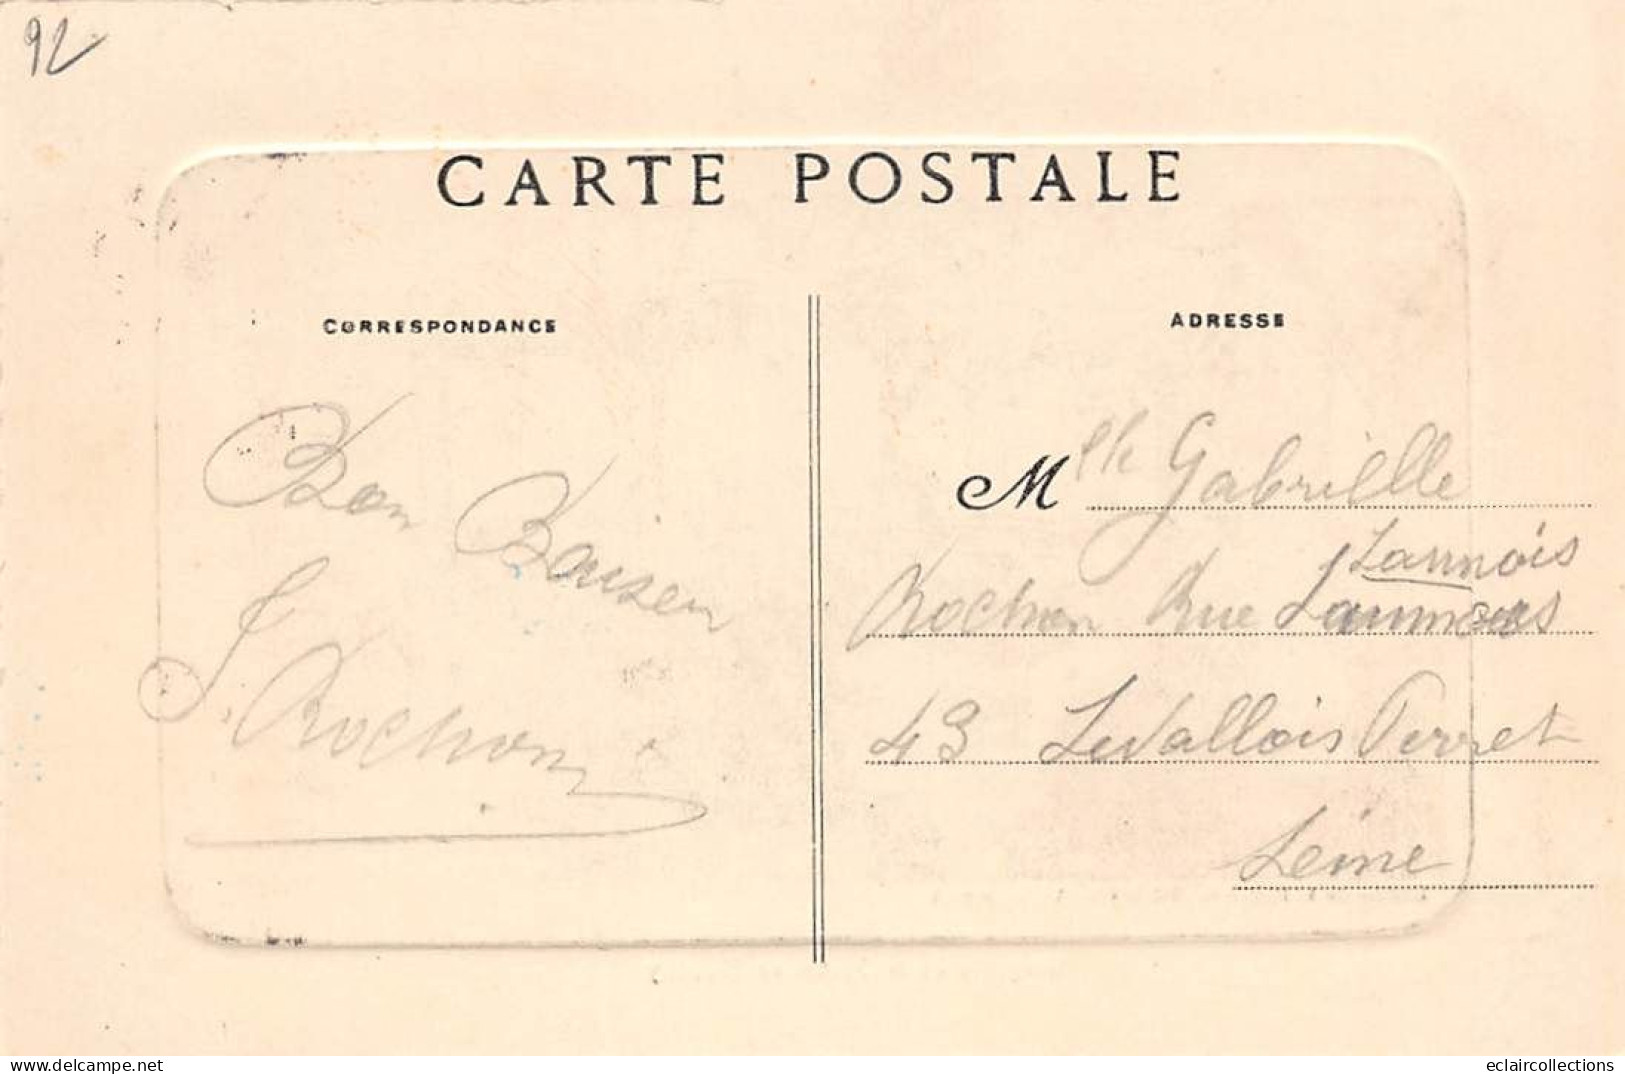 92
CARTE POSTALE
CORRESPONDANCE
ADRESSE
Bon Baiser
J. Rochon
Mlle Gabrielle
Lannois
Rochon Rue
43 Levallois Perret
Seine
www.delcampe.net
eclaircollections